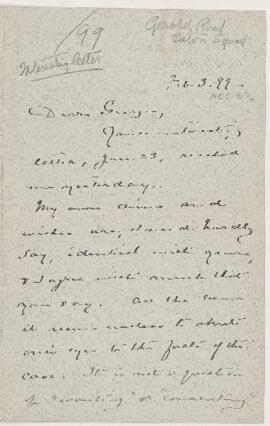 /99
Interesting letter
Gerald Road
Eaton Square
Feb. 3. 99 -
Dear George,
Your interesting
letter, Jan. 23, reached
me yesterday.
My own aims and
wishes are, I need hardly
say, identical with yours,
& I agree with much that
you say. At the same
it seems useless to shut
one's eyes to the facts of the
case. It is not a question
of "wanting" or "consenting"